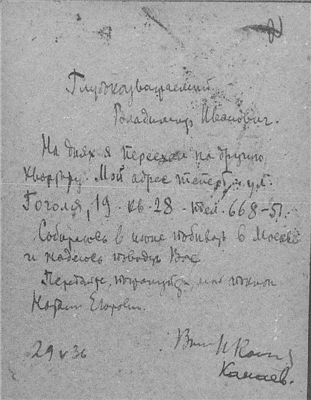 Глубокоуважаемый
Владимир Иванович.
На днях я переехал на другую
квартиру. Мой адрес теперь: ул.
Гоголя, 19. кв. 28. тел. 668-51.
Собираюсь в июне побывать в Москве
и надеюсь повидать Вас.
Передайте, пожалуйста, мой поклон
Егоровне.
29 V 36
Ваш И Кана
Канаев.